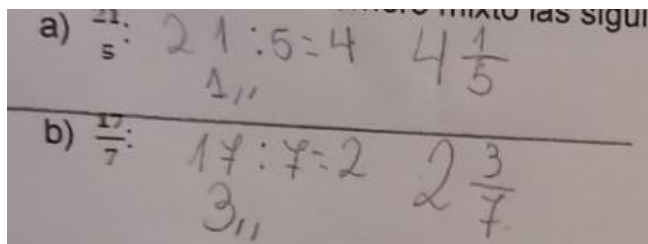 mixto las sigui
a) 21/5: 21:5=4 4 1/5
1,,
b) 17/7: 17:7=2 2 3/7
3,,